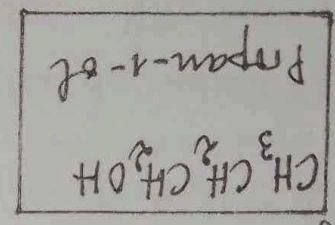 CH₃CH₂CH₂OH
Propan-1-ol